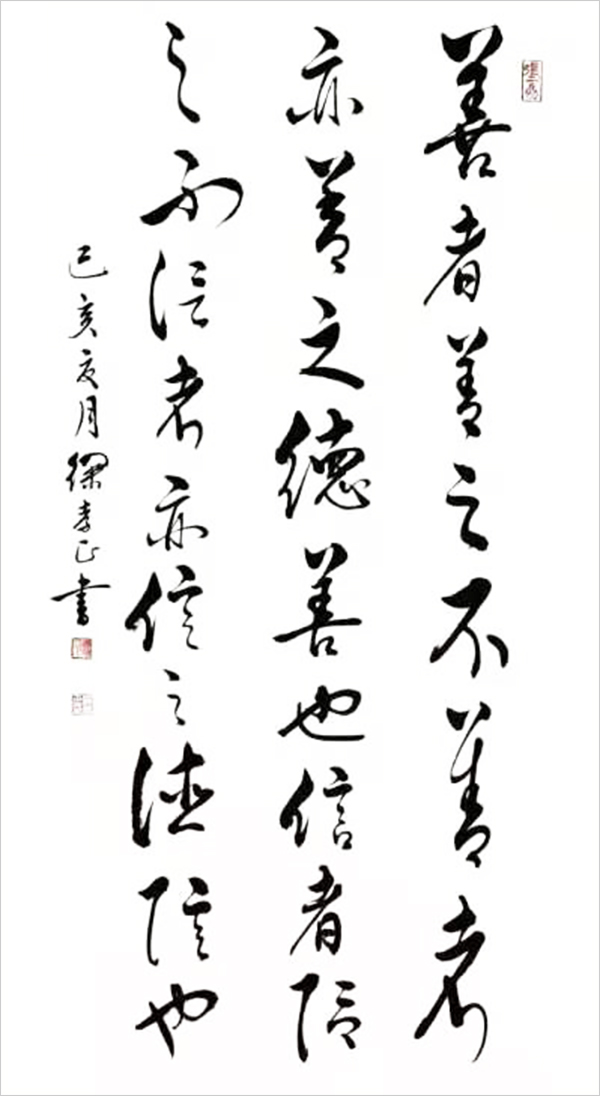 善者善之不善者
亦善之德善也信者信
之不信者亦信之德信也
己亥夏月徐孝正書